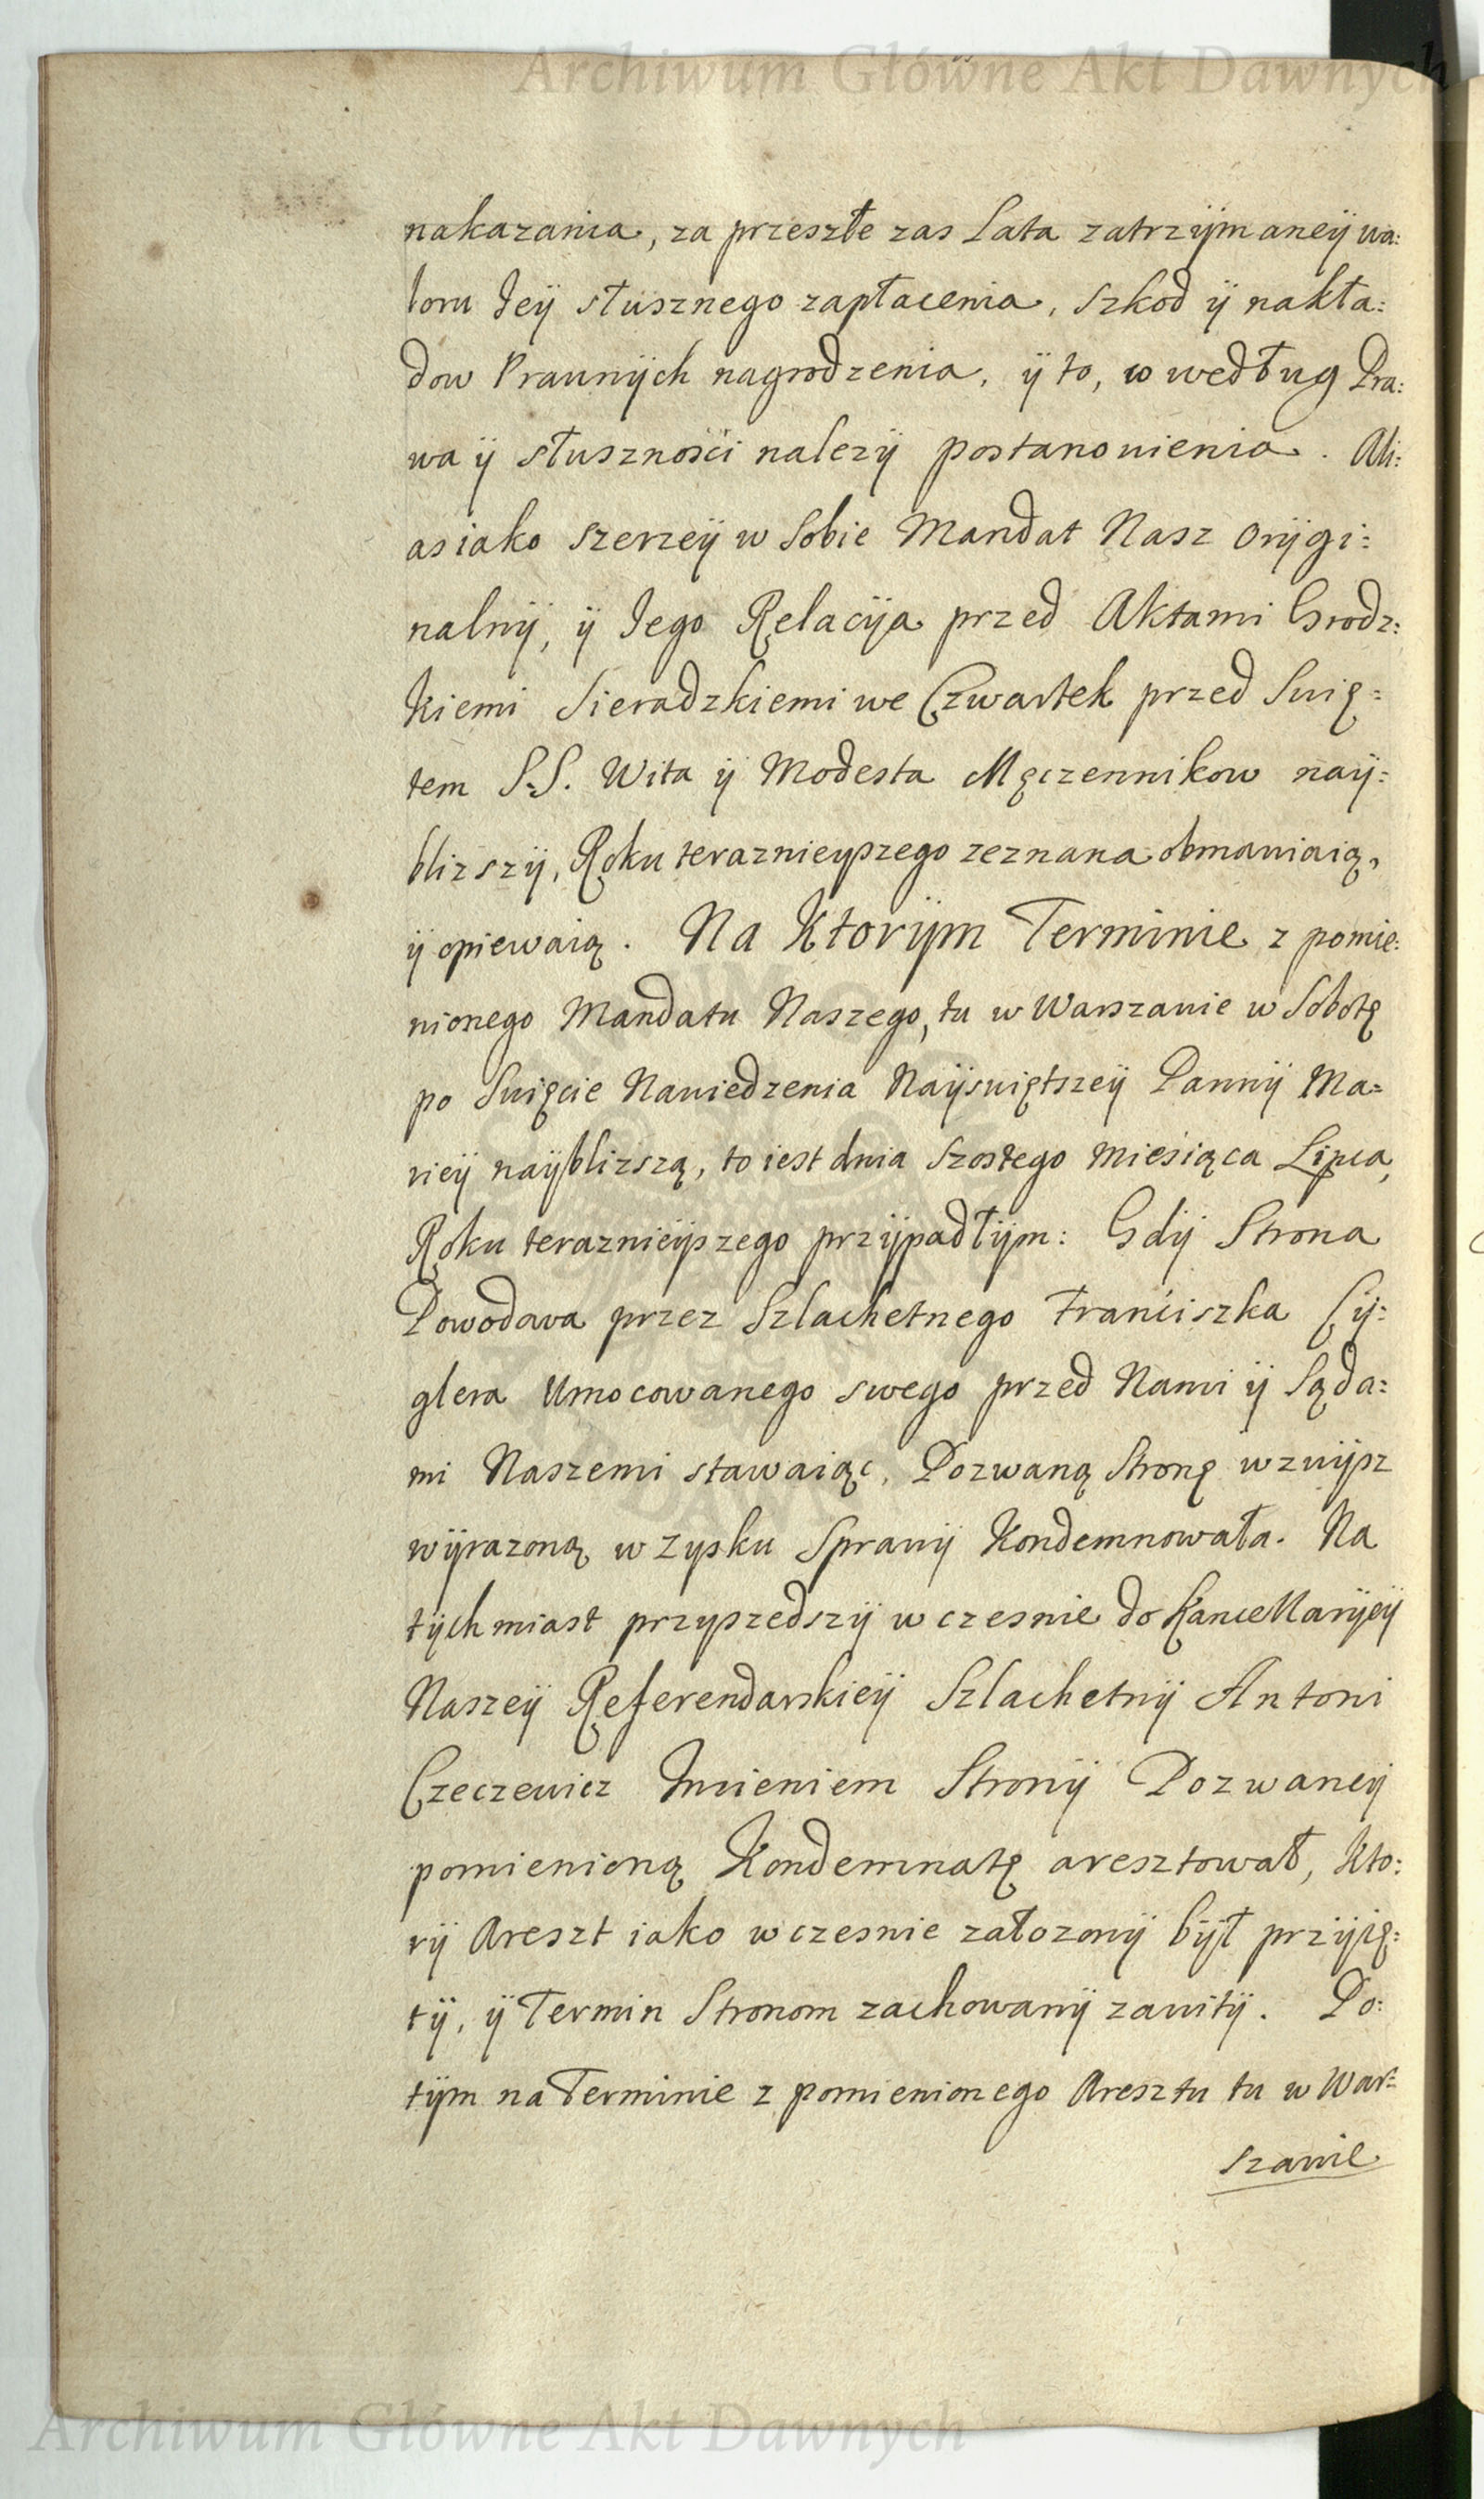 Archiwum Główne Akt Dawnych
nakazania, za przeszłe zas Lata zatrzÿmaneÿ wa:
loru Jeÿ słusznego zapłacenia, szkod ÿ nakła:
dow Prawnÿch nagrodzenia, ÿ to, wwedług Pra:
wa ÿ słusznośći nalezÿ postanowienia. Ali:
as iako szerzeÿ w sobie Mandat Nasz Orÿgi:
nalnÿ, ÿ Jego Relacÿa przed Aktami Grodz:
kiemi Sieradzkiemi we Czwartek przed Swię:
tem S.S. Wita ÿ Modesta Męczennikow naÿ:
blizszÿ, Roku teraznieÿszego zeznana obmawiaią,
ÿ opiewaią. Na Ktorÿm Terminie z pomie:
nionego Mandatu Naszego, tu w Warszawie w Sobotę
po Swięcie Nawiedzenia Naÿswiętszeÿ Pannÿ Ma:
rieÿ naÿblizszą, to iest dnia Szostego Miesiąca Lipca,
Roku teraznieÿszego przÿpadłÿm: Gdÿ Strona
Powodowa przez Szlachetnego Franćiszka Cÿ:
glera Umocowanego swego przed Nami ÿ Sąda:
mi Naszemi stawaiąc, Pozwaną Stronę wzwÿsz
wÿrazoną w Zysku Sprawÿ Kondemnowała. Na
tÿchmiast przyszedszÿ wczesnie do Kancellarÿeÿ
Naszeÿ Referendarskieÿ Szlachetnÿ Antoni
Czeczewicz Imieniem Stronÿ Pozwaneÿ
pomienioną Kondemnatę aresztował, Kto:
rÿ Areszt iako wczesnie załozonÿ bÿł przÿię:
tÿ, ÿ Termin Stronom zachowanÿ zawitÿ. Po:
tÿm na Terminie z pomienionego Aresztu tu w War:
szawie
Archiwum Główne Akt Dawnych